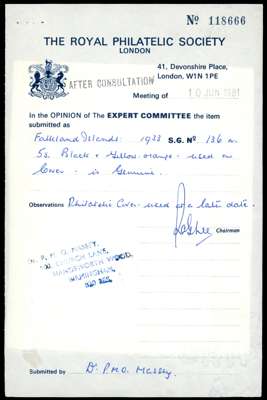 Nº 118666
THE ROYAL PHILATELIC SOCIETY
LONDON
41, Devonshire Place,
London, W1N 1PE
AFTER CONSULTATION
Meeting of 10 JUN 1981
In the OPINION of The EXPERT COMMITTEE the item
submitted as
Falkland Islands: 1933 S.G. Nº 136 a.
5s. Black & Yellow-orange - used on
Cover - is Genuine.
Observations Philatelic Cover used at a late date.
Chairman
DR. P. M. O. MASSEY,
CHURCH LANE,
HANDSWORTH WOOD,
BIRMINGHAM,
Submitted by Dr. P.M.O. Massey.